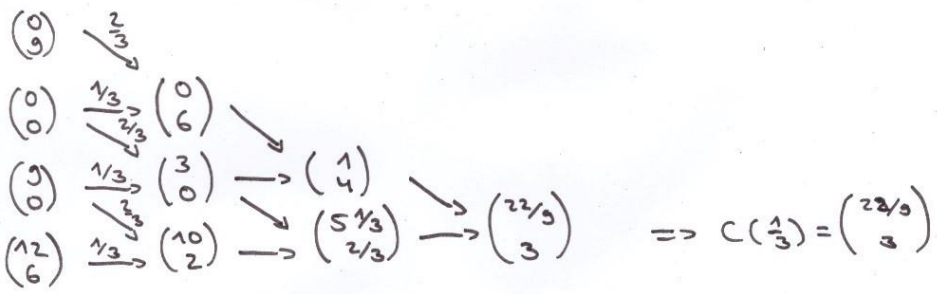 (0 9) 2/3
(0 0) 1/3 (0 6)
2/3
(9 0) 1/3 (3 0) (1 4)
2/3
(12 6) 1/3 (10 2) (5 1/3 2/3) (22/9 3) => C(1/3) = (22/9 3)